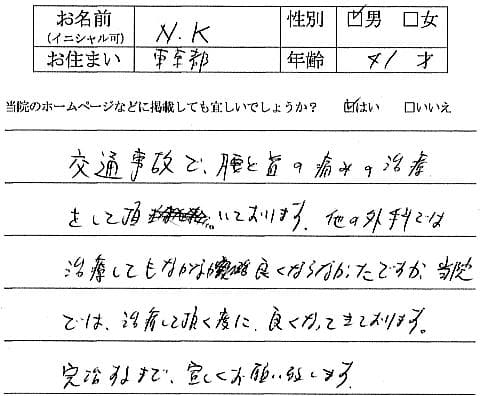 お名前
(イニシャル可)
N.K
性別 ☑男 □女
お住まい
東京都
年齢 41才
当院のホームページなどに掲載しても宜しいでしょうか? ☑はい □いいえ
交通事故で、腰と首の痛みの治療
をして頂いております。他の外科では
治療してもなかなか良くならなかったですが、当院
では、治療して頂く度に、良くなってきております。
完治するまで、宜しくお願い致します。